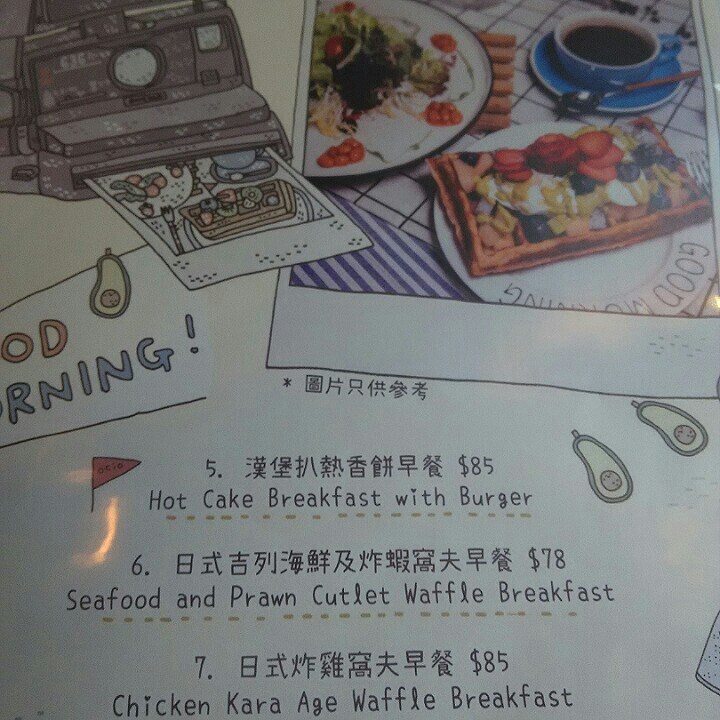 GOOD MORNING
OOD
ORNING!
* 圖片只供參考
ocio
5. 漢堡扒熱香餅早餐 $85
Hot Cake Breakfast with Burger
6. 日式吉列海鮮及炸蝦窩夫早餐 $78
Seafood and Prawn Cutlet Waffle Breakfast
7. 日式炸雞窩夫早餐 $85
Chicken Kara Age Waffle Breakfast